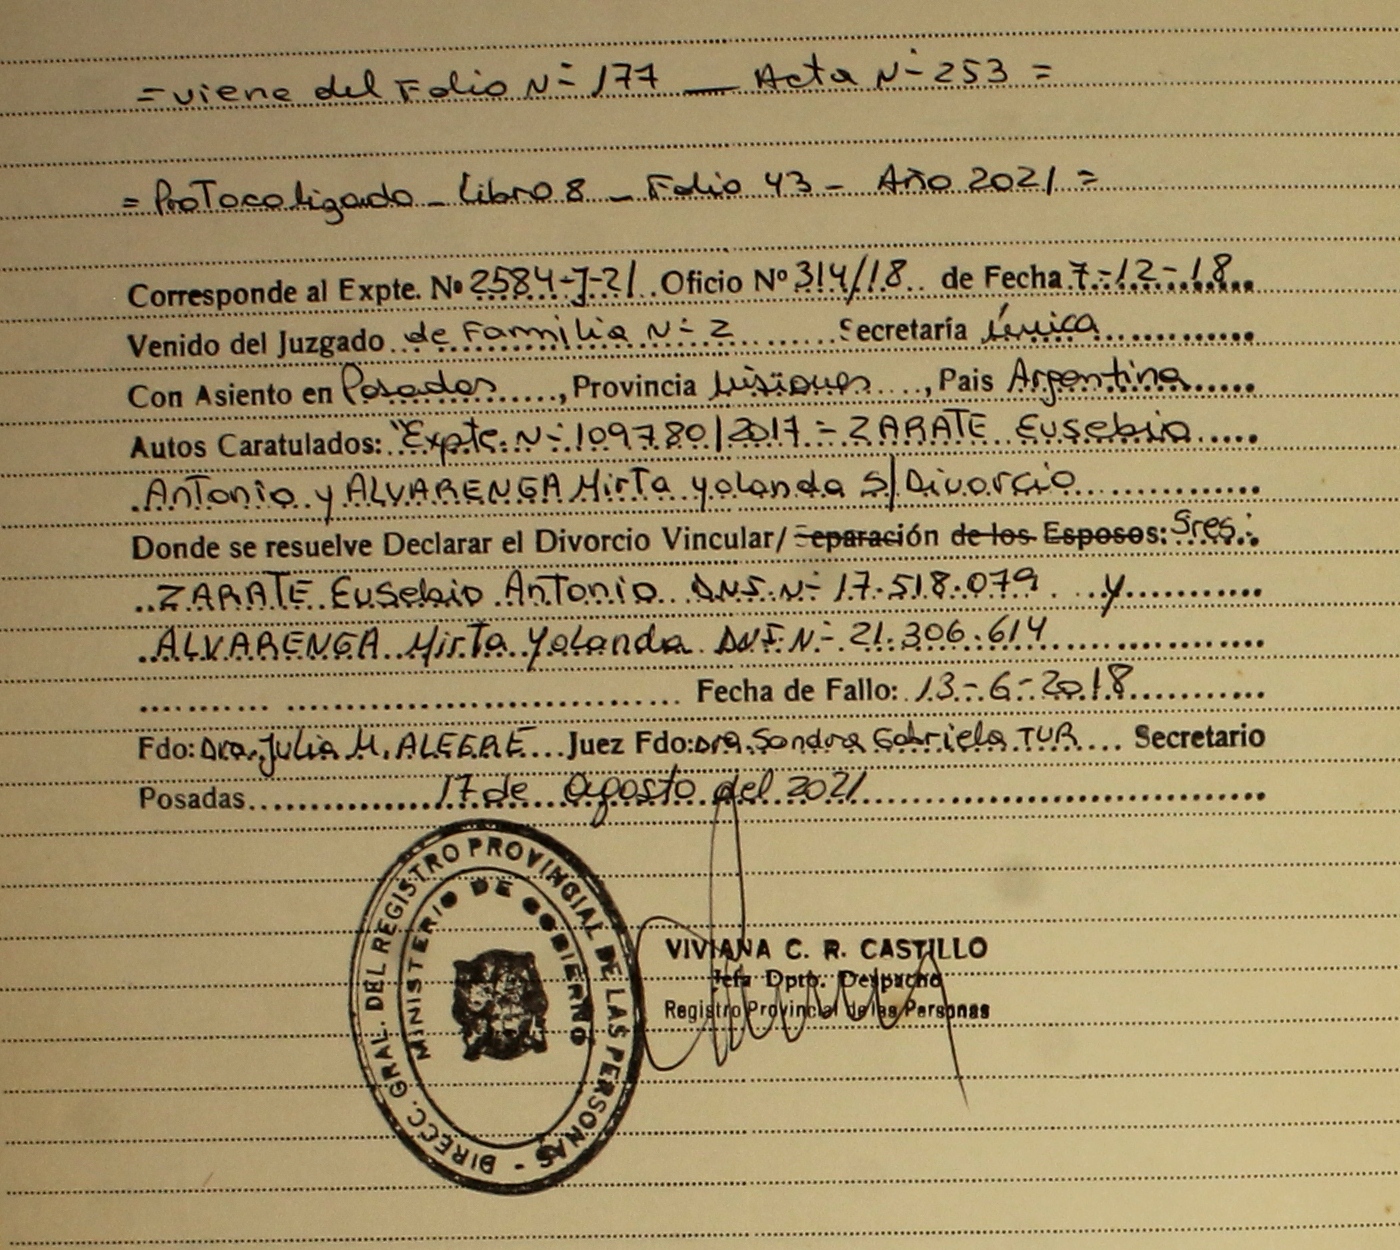 = viene del Folio Nº 177 — Acta Nº 253 =
= Protocoligado - Libro 8 - Folio 43 - Año 2021 =
Corresponde al Expte. Nº 2584-J-21 Oficio Nº 314/18 de Fecha 7-12-18
Venido del Juzgado de Familia Nº 2 Secretaría única
Con Asiento en Posadas, Provincia Misiones, Pais Argentina
Autos Caratulados: "Expte. Nº 109780/2017 - ZARATE Eusebio
Antonio y ALVARENGA Mirta yolanda S/Divorcio
Donde se resuelve Declarar el Divorcio Vincular/ Separación de los Esposos: Sres:
ZARATE Eusebio Antonio D.N.I. Nº 17.518.079 y
ALVARENGA Mirta Yolanda DNI Nº 21.306.614
Fecha de Fallo: 13-6-2018
Fdo: Dra. Julia M. ALEGRE Juez Fdo: Dra. Sandra Gabriela TUR Secretario
Posadas 17 de Agosto del 2021
DIRECC. GRAL. DEL REGISTRO PROVINCIAL DE LAS PERSONAS -
MINISTERIO DE GOBIERNO
VIVIANA C. R. CASTILLO
Jefa Dpto. Despacho
Registro Provincial de las Personas